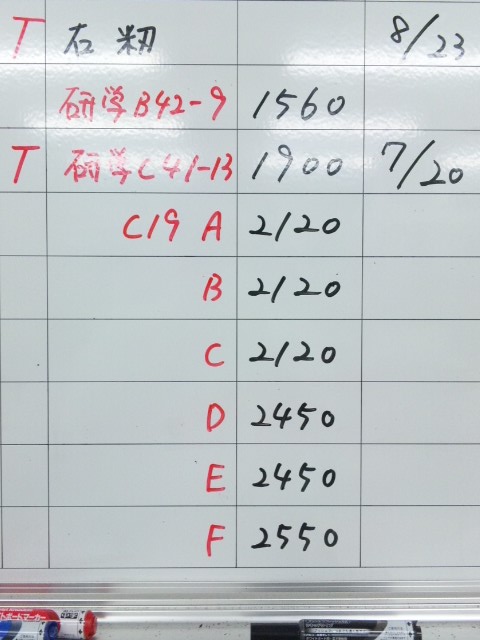 T 石粉 8/23
研学B42-9 1560
T 研学C41-13 1900 7/20
C19 A 2120
B 2120
C 2120
D 2450
E 2450
F 2550